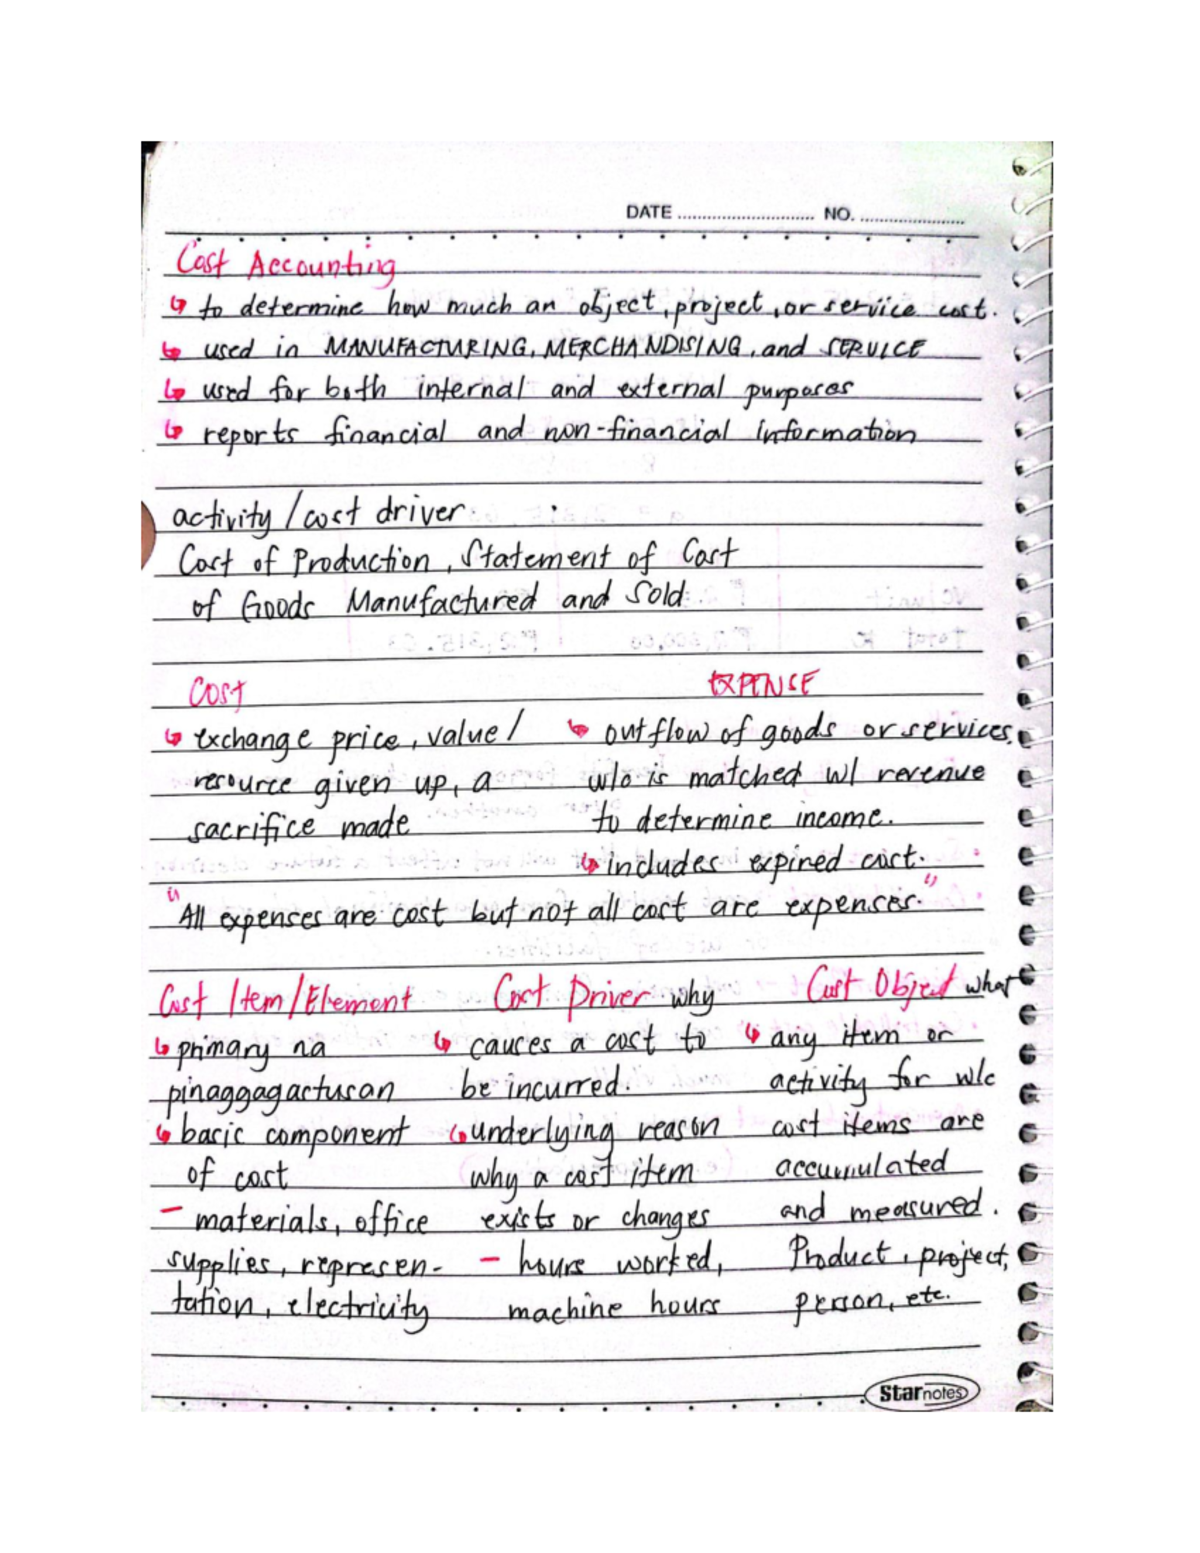 DATE ........................ NO. ........................
Cost Accounting
↳ to determine how much an object, project, or service cost.
↳ used in MANUFACTURING, MERCHANDISING, and SERVICE
↳ used for both internal and external purposes
↳ reports financial and non-financial information
activity / cost driver
Cost of Production, Statement of Cost
of Goods Manufactured and Sold
COST
↳ exchange price, value /
resource given up, a
sacrifice made
EXPENSE
↳ outflow of goods or services,
w/c is matched w/ revenue
to determine income.
↳ includes expired cost.
"All expenses are cost but not all cost are expenses."
Cost Item/Element
↳ primary na
pinaggagactusan
↳ basic component
of cost
- materials, office
supplies, represen-
tation, electricity
Cost Driver why
↳ causes a cost to
be incurred.
↳ underlying reason
why a cost item
exists or changes
- hours worked,
machine hours
Cost Object what
↳ any item or
activity for w/c
cost items are
accumulated
and measured.
Product, project,
person, etc.
Starnotes